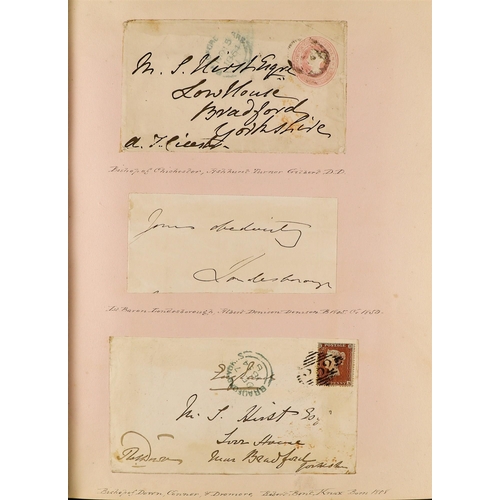 M. S. Hirst Esqre
Low House
Bradford
Yorkshire
A. T. Cicestr
Bishop of Chichester, Ashhurst Turner Gilbert D.D.
Yours obediently
Londesborough
1st Baron Londesborough, Albert Denison Denison
POSTAGE
BRADFORD YORKS
M. S. Hirst Esq
Low House
Near Bradford
Yorkshire
Bishop of Down, Connor, & Dromore, Robert Bent Knox